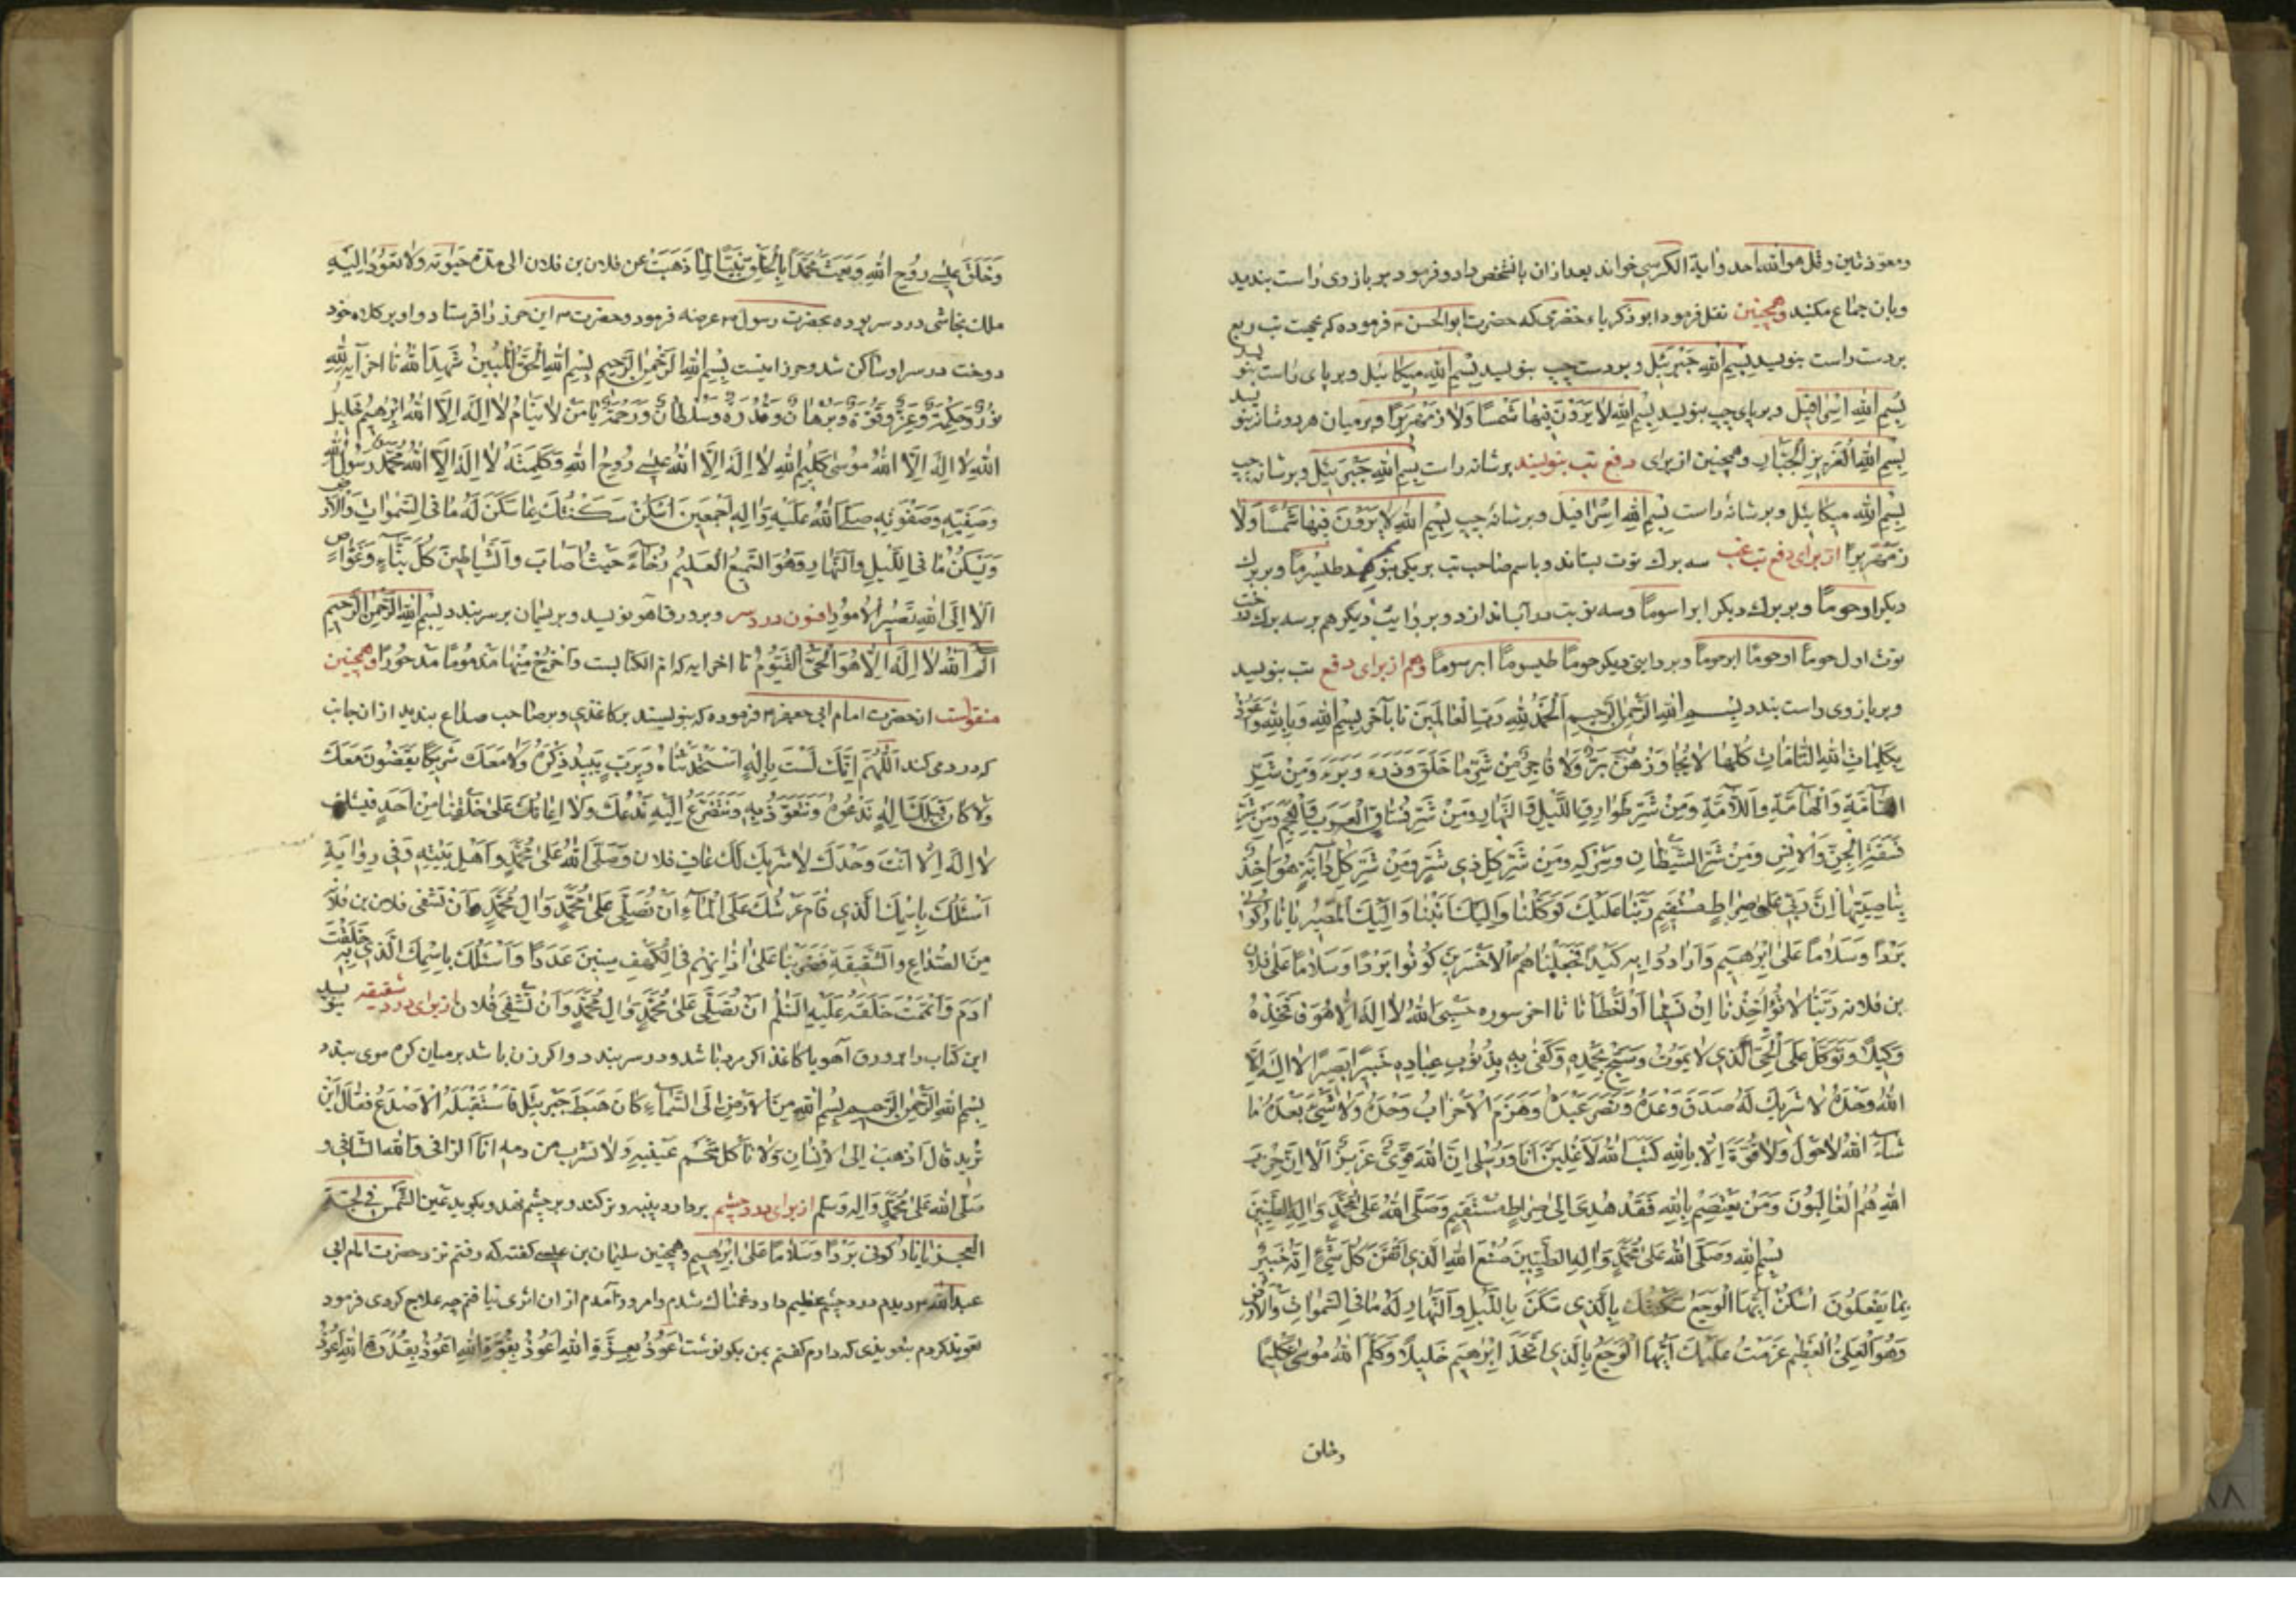 ومعوذتین وقل هو الله احد وایة الکرسی خواند بعد ازان بانشخص داد و فرمود بر بازوی راست بندید
وبان جماع مکنید وهمچنین نقل فرمود ابو ذکریاء خضرمی که حضرت ابو الحسن م فرموده که بجهت تب ربع
بر دست راست بنویسد بسم الله جبرئیل و بر دست چپ بنویسد بسم الله میکائیل و بر پای راست بنویسد
بسم الله اسرافیل و بر پای چپ بنویسد بسم الله لا یرون فیها شمسا ولا زمهریرا و بر میان هر دو شانه بنویسد
بسم الله العزیز الجبار وهمچنین از برای دفع تب بنویسند بر شانه راست بسم الله جبرئیل و بر شانه چپ
بسم الله میکائیل و بر شانه راست بسم الله اسرافیل و بر شانه چپ بسم الله لا یرون فیها شمسا ولا
زمهریرا از برای دفع تب غب سه برك توت بستاند و باسم صاحب تب بر یکی بنویسد طیسوما و بر برك
دیکر اوحوما و بر برك دیکر ابراسوما وسه نوبت در آب اندازد و بروایت دیکر هم بر سه برك درخت
توت اول حوما اوحوما ابرحوما و بروایتی دیکر حوما طیسوما ابرسوما وهم از برای دفع تب بنویسد
و بر بازوی راست بندد بسم الله الرحمن الرحیم الحمد لله رب العالمین تا بآخر بسم الله وبالله واعوذ
بکلمات الله التامات کلها لا یجاوزهن بر ولا فاجر من شر ما خلق وذرء وبرء ومن شر
الهامة واللامة ومن شر طوارق اللیل والنهار ومن شر فساق العرب والعجم ومن شر
فسقة الجن والانس ومن شر الشیطان وشرکه ومن شر کل ذی شر ومن شر کل دابة هو اخذ
بناصیتها ان ربی علی صراط مستقیم ربنا علیك توکلنا والیك انبنا والیك المصیر یا نار کونی
بردا وسلاما علی ابرهیم وارادوا به کیدا فجعلناهم الاخسرین کونوا بردا وسلاما علی فلان
بن فلانه ربنا لا تؤاخذنا ان نسینا او اخطأنا تا اخر سوره حسبی الله لا اله الا هو فاتخذه
وکیلا وتوکل علی الحی الذی لا یموت وسبح بحمده وکفی به بذنوب عباده خبیرا بصیرا لا اله الا
الله وحده لا شریك له صدق وعده ونصر عبده وهزم الاحزاب وحده ولا شیء بعده ما
شاء الله لا حول ولا قوة الا بالله کتب الله لاغلبن انا ورسلی ان الله قوی عزیز الا ان حزب
الله هم الغالبون ومن یعتصم بالله فقد هدی الی صراط مستقیم وصلی الله علی محمد واله الطیبین
بسم الله وصلی الله علی محمد واله الطیبین صنع الله الذی اتقن کل شیء انه خبیر
بما یفعلون اسکن ایها الوجع سکنتك بالذی سکن باللیل والنهار له ما فی السموات والارض
وهو العلی العظیم عزمت علیك ایها الوجع بالذی اتخذ ابرهیم خلیلا وکلم الله موسی تکلیما
وخلق
وخلق عیسی روح الله وبعث محمدا بالحق نبیا لما ذهبت عن فلان بن فلان الی مدة حیوته ولا تعود الیه
ملك نجاشی درد سر بوده بحضرت رسول م عرضه فرمود وحضرت م این حرز را فرستاد و او بر کلاه خود
دوخت درد سر او ساکن شد وحرز اینست بسم الله الرحمن الرحیم بسم الله الحق المبین شهد الله تا اخر آیه لله
نور وحکمة وعز وقوة وبرهان وقدرة وسلطان ورحمة یا من لا ینام لا اله الا الله ابرهیم خلیل
الله لا اله الا الله موسی کلیم الله لا اله الا الله عیسی روح الله وکلمته لا اله الا الله محمد رسول الله
وصفیه وصفوته صلی الله علیه واله اجمعین اسکن سکنتك بما سکن له ما فی السموات والارض
ویسکن ما فی اللیل والنهار وهو السمیع العلیم رخاء حیث اصاب والشیاطین کل بناء وغواص
الا الی الله تصیر الامور افسون درد سر و بر ورق آهو نویسد و بریسمان بر سر بندد بسم الله الرحمن الرحیم
الم الله لا اله الا هو الحی القیوم تا اخر ایه که ام الکتابست واخرج منها مذموما مدحورا وهمچنین
منقولست از حضرت امام ابی جعفر م فرموده که بنویسند بر کاغذی و بر صاحب صداع بندید از ان جانب
که درد می کند اللهم انك لست باله استحدثناه ولا برب یبید ذکره ولا معك شرکا یقضون معك
ولا کان قبلك اله ندعوه ونتعوذ به ونتضرع الیه وندعك ولا اعانك علی خلقنا من احد فیشك
لا اله الا انت وحدك لا شریك لك عاف فلان وصلی الله علی محمد واهل بیته وفی روایة
اسئلك باسمك الذی قام عرشك علی الماء ان تصلی علی محمد وال محمد وان تشفی فلان بن فلان
من الصداع والشقیقة فضربنا علی اذانهم فی الکهف سنین عددا واسئلك باسمك الذی خلقت به
آدم واتممت خلقه علیه السلم ان تصلی علی محمد وال محمد وان تشفی فلان از برای درد شقیقه بنویسد
این کتاب را بر ورق آهو یا کاغذ اکر مرد باشد و در سر بندد و اکر زن باشد بر میان کرم موی بندد
بسم الله الرحمن الرحیم بسم الله من الارض الی السماء کان هبط جبرئیل فاستقبله الاصدع فقال این
ترید قال اذهب الی الانسان ولا تأکل شحم عینیه ولا تشرب من دمه انا الراقی والله الشافی و
صلی الله علی محمد واله وسلم از برای درد چشم بر دارد پنبه و تر کند و بر چشم نهد و بکوید عین الشمس فی لجة
البحر یا نار کونی بردا وسلاما علی ابرهیم وهمچنین سلیمان بن عیسی کفته که رفتم نزد حضرت امام ابی
عبدالله م دیدم درد چشم عظیم دارد غمناك شدم و امروز آمدم از ان اثری نیافتم چه علاج کردی فرمود
تعویذ کردم بتعویذی که دارم کفتم بمن بکو نوشت اعوذ بعزة الله اعوذ بقوة الله اعوذ بقدرة الله اعوذ